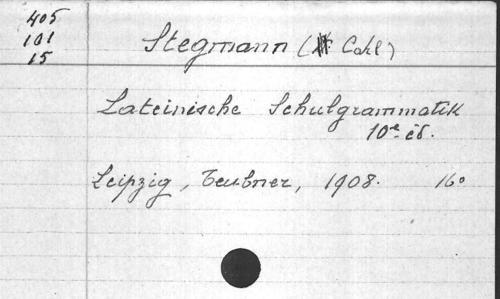 405
101
15
Stegmann (Carl)
Lateinische Schulgrammatik
10e éd.
Leipzig, Teubner, 1908. 16°